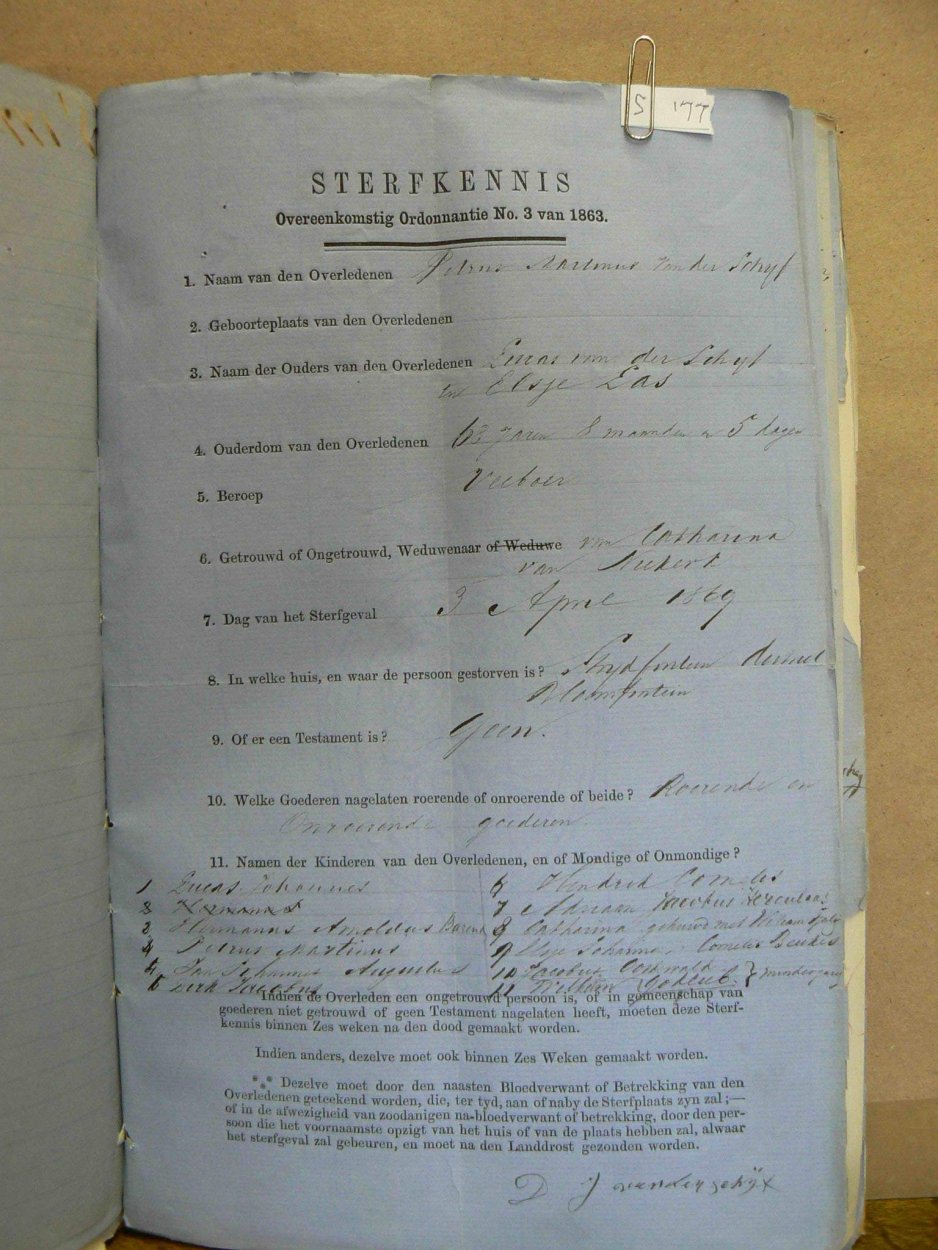 S '77
STERFKENNIS
Overeenkomstig Ordonnantie No. 3 van 1863.
1. Naam van den Overledenen Petrus Martinus van der Schyf
2. Geboorteplaats van den Overledenen
3. Naam der Ouders van den Overledenen Lucas van der Schyf
en Elsje Eas
4. Ouderdom van den Overledenen 63 Jaren 8 maanden 5 dagen
5. Beroep Veeboer
6. Getrouwd of Ongetrouwd, Weduwenaar of Weduwe van Catharina
van Niekerk
7. Dag van het Sterfgeval 3 April 1869
8. In welke huis, en waar de persoon gestorven is? Strydfontein district
Bloemfontein
9. Of er een Testament is? Geen.
10. Welke Goederen nagelaten roerende of onroerende of beide? Roerende en
Onroerende goederen
11. Namen der Kinderen van den Overledenen, en of Mondige of Onmondige?
1 Lucas Johannes
2 Hermanus
2 Hermanus Arnoldus Barend
3 Petrus Martinus
4 Jan Johannes Augustus
5 Dirk Jacobus
6 Hendrik Cornelis
7 Adriaan Jacobus Hercules
8 Catharina gehuwd met Willem
9 Elsje Johanna Cornelis Beukes
10 Jacobus Oostwald
11 Willem Godlieb } minderjarig
Indien de Overleden een ongetrouwd persoon is, of in gemeenschap van
goederen niet getrouwd of geen Testament nagelaten heeft, moeten deze Sterf-
kennis binnen Zes weken na den dood gemaakt worden.
Indien anders, dezelve moet ook binnen Zes Weken gemaakt worden.
*** Dezelve moet door den naasten Bloedverwant of Betrekking van den
Overledenen geteekend worden, die, ter tyd, aan of naby de Sterfplaats zyn zal;—
of in de afwezigheid van zoodanigen na-bloedverwant of betrekking, door den per-
soon die het voornaamste opzigt van het huis of van de plaats hebben zal, alwaar
het sterfgeval zal gebeuren, en moet na den Landdrost gezonden worden.
D J vander schyf